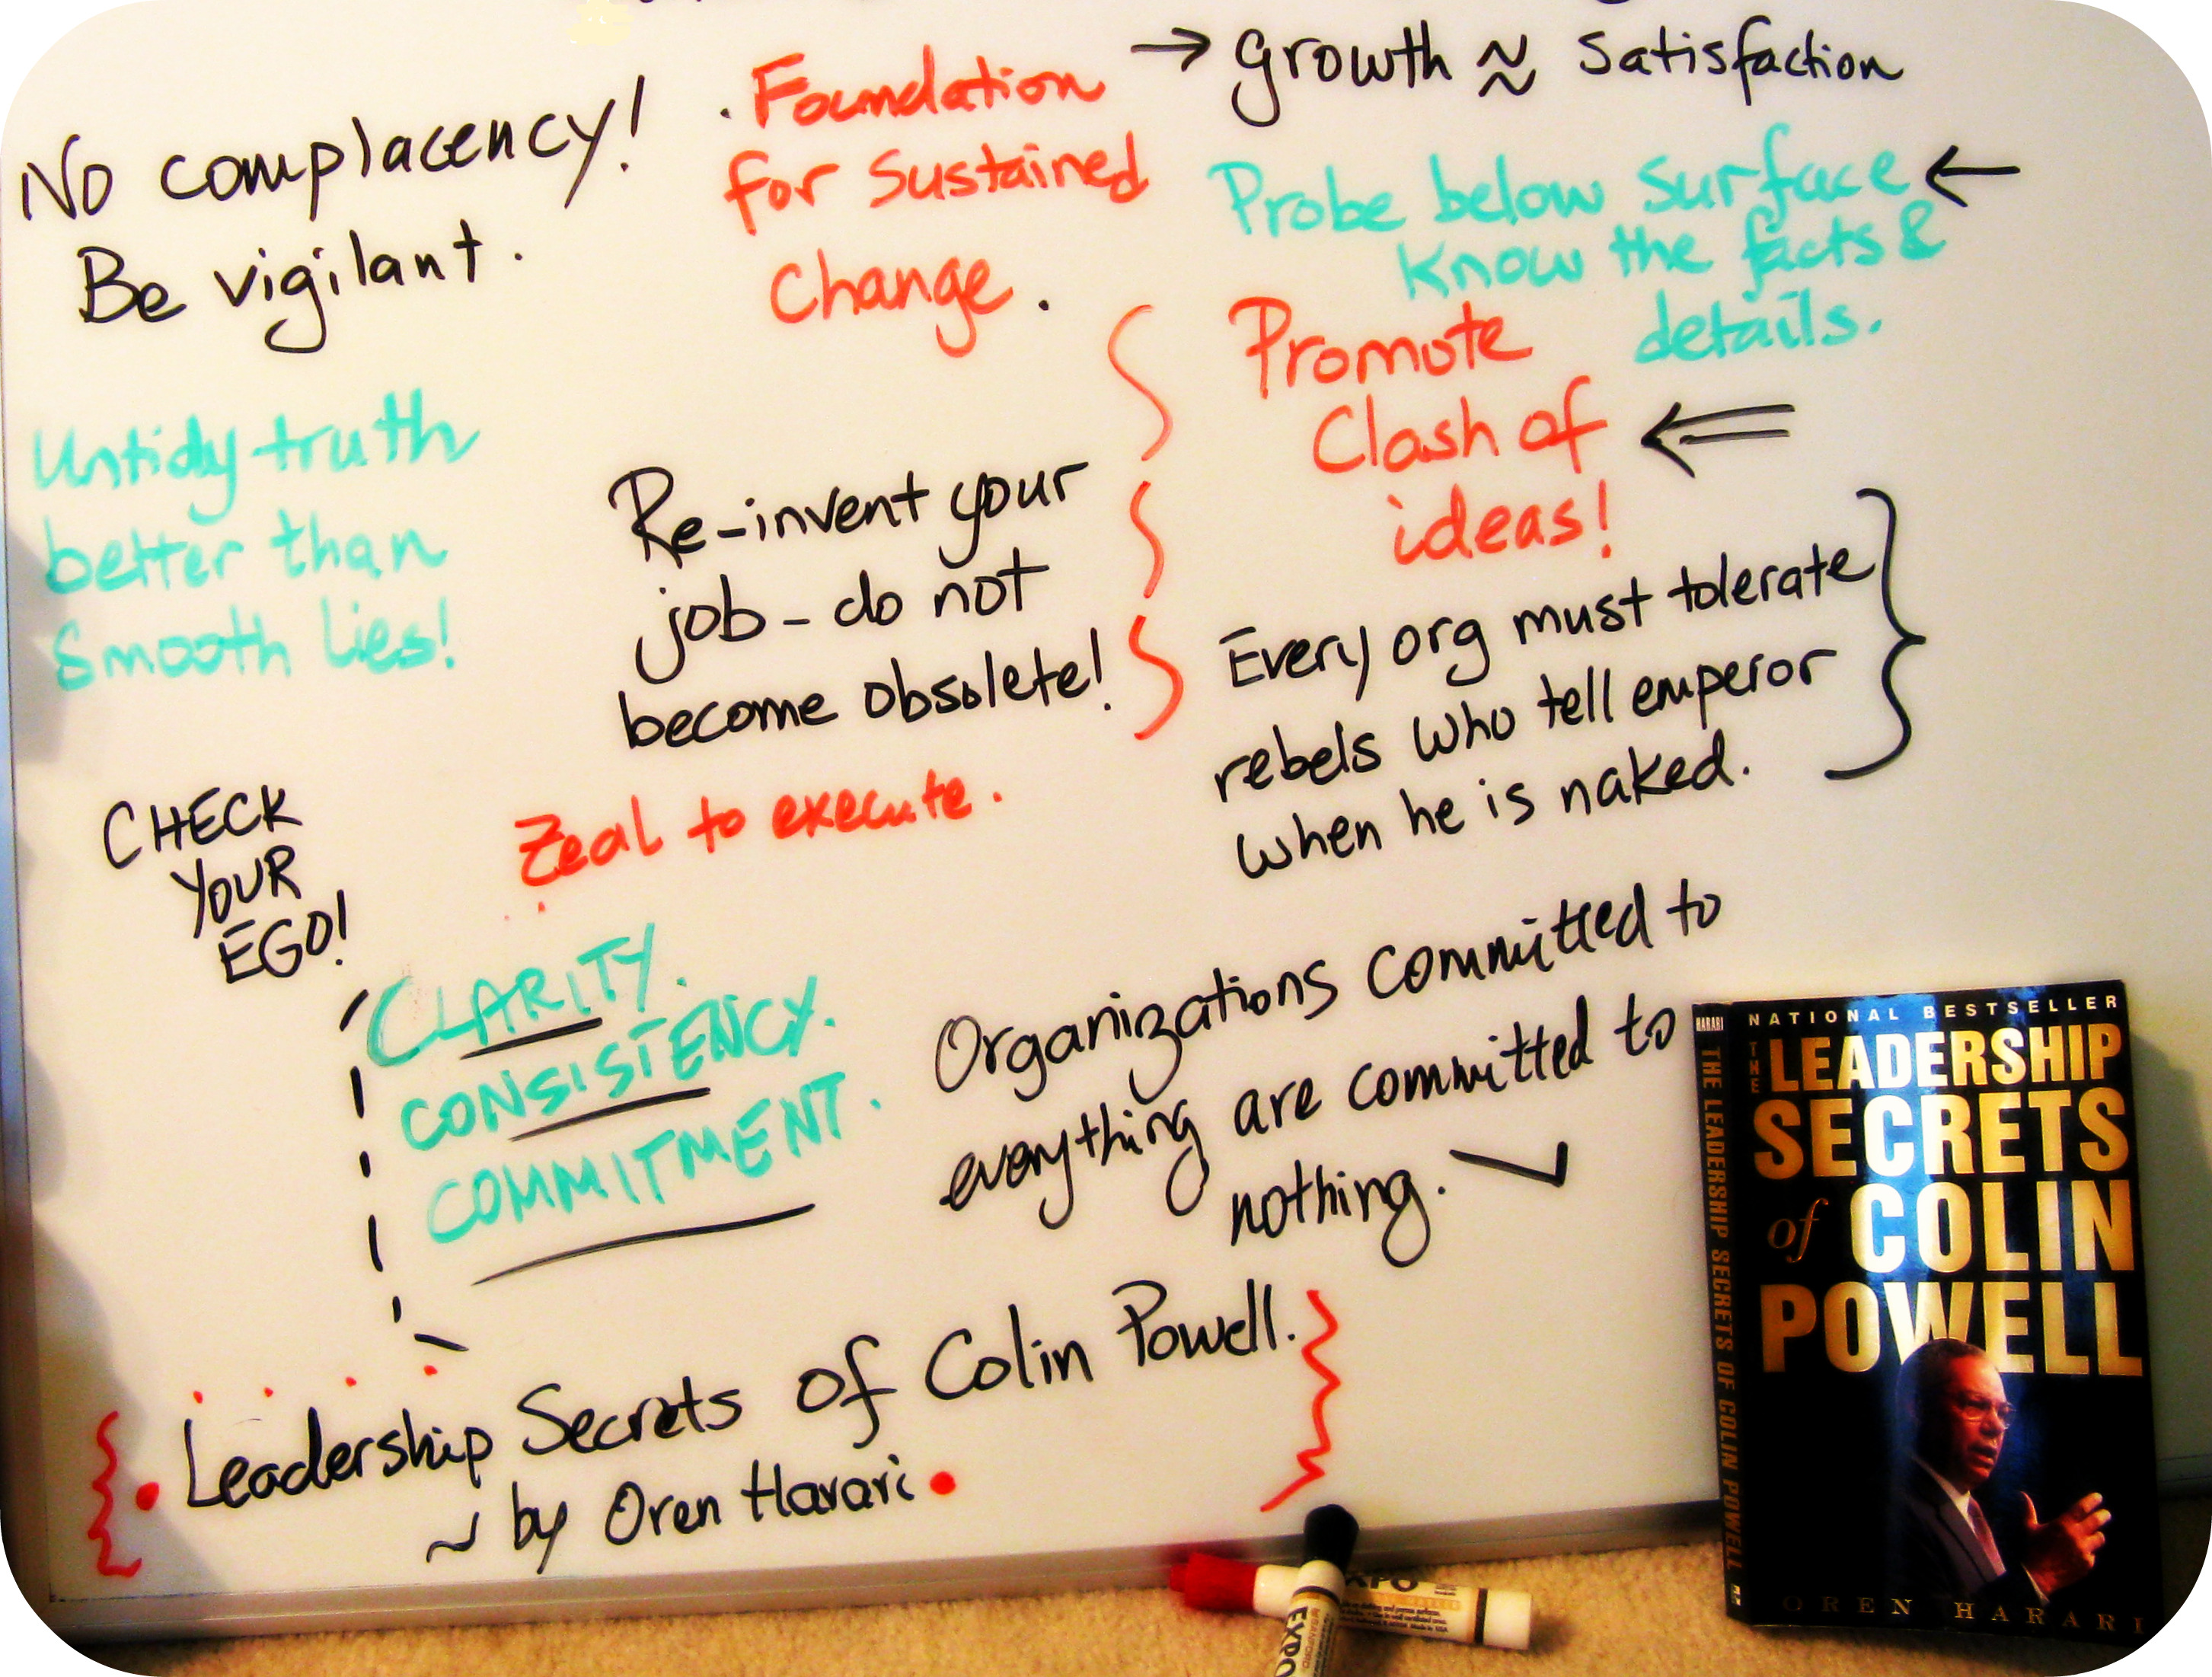 No complacency!
Be vigilant.
. Foundation
for sustained
change.
→ growth ≈ satisfaction
Probe below surface ←
know the facts &
details.
Promote
Clash of
ideas!
Untidy truth
better than
smooth lies!
Re-invent your
job - do not
become obsolete!
Every org must tolerate
rebels who tell emperor
when he is naked.
CHECK
YOUR
EGO!
Zeal to execute.
CLARITY.
CONSISTENCY.
COMMITMENT.
Organizations committed to
everything are committed to
nothing.
Leadership Secrets of Colin Powell.
~ by Oren Harari
NATIONAL BESTSELLER
THE LEADERSHIP
SECRETS
of COLIN
POWELL
OREN HARARI
HARARI THE LEADERSHIP SECRETS OF COLIN POWELL
EXPO
EXPO